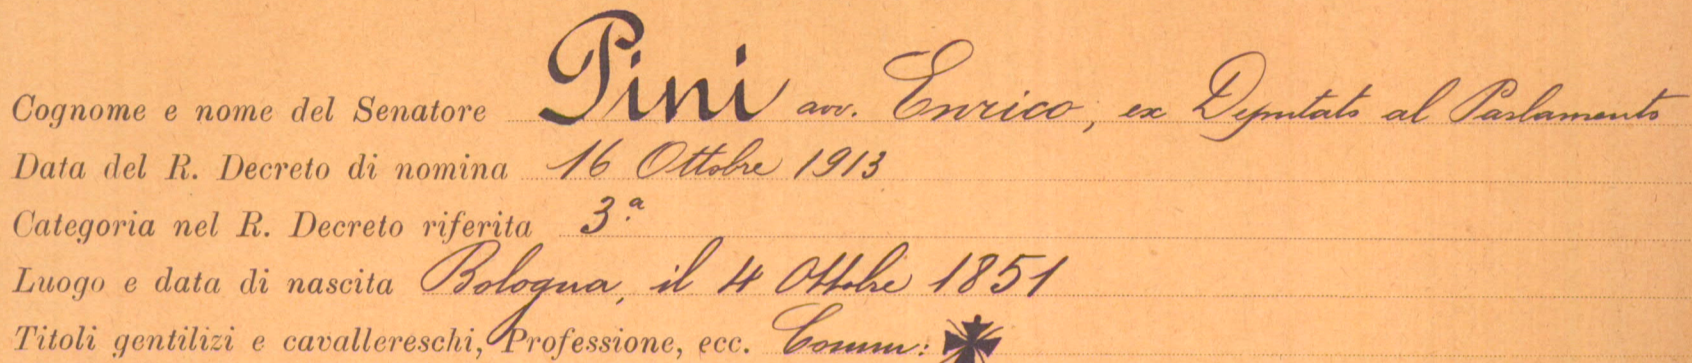 Cognome e nome del Senatore Pini avv. Enrico, ex Deputato al Parlamento
Data del R. Decreto di nomina 16 Ottobre 1913
Categoria nel R. Decreto riferita 3.ª
Luogo e data di nascita Bologna, il 4 Ottobre 1851
Titoli gentilizi e cavallereschi, Professione, ecc. Comm: ✠